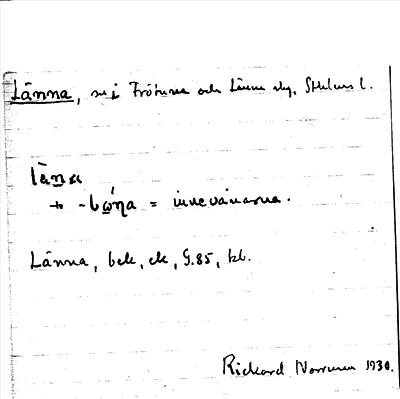 Länna, sn i Frötuna och Länna skg, Sthlms l.
läna
+ -bona = innevånarna.
Länna, bek, ek, G.85, kb.
Rickard Norrman 1930.